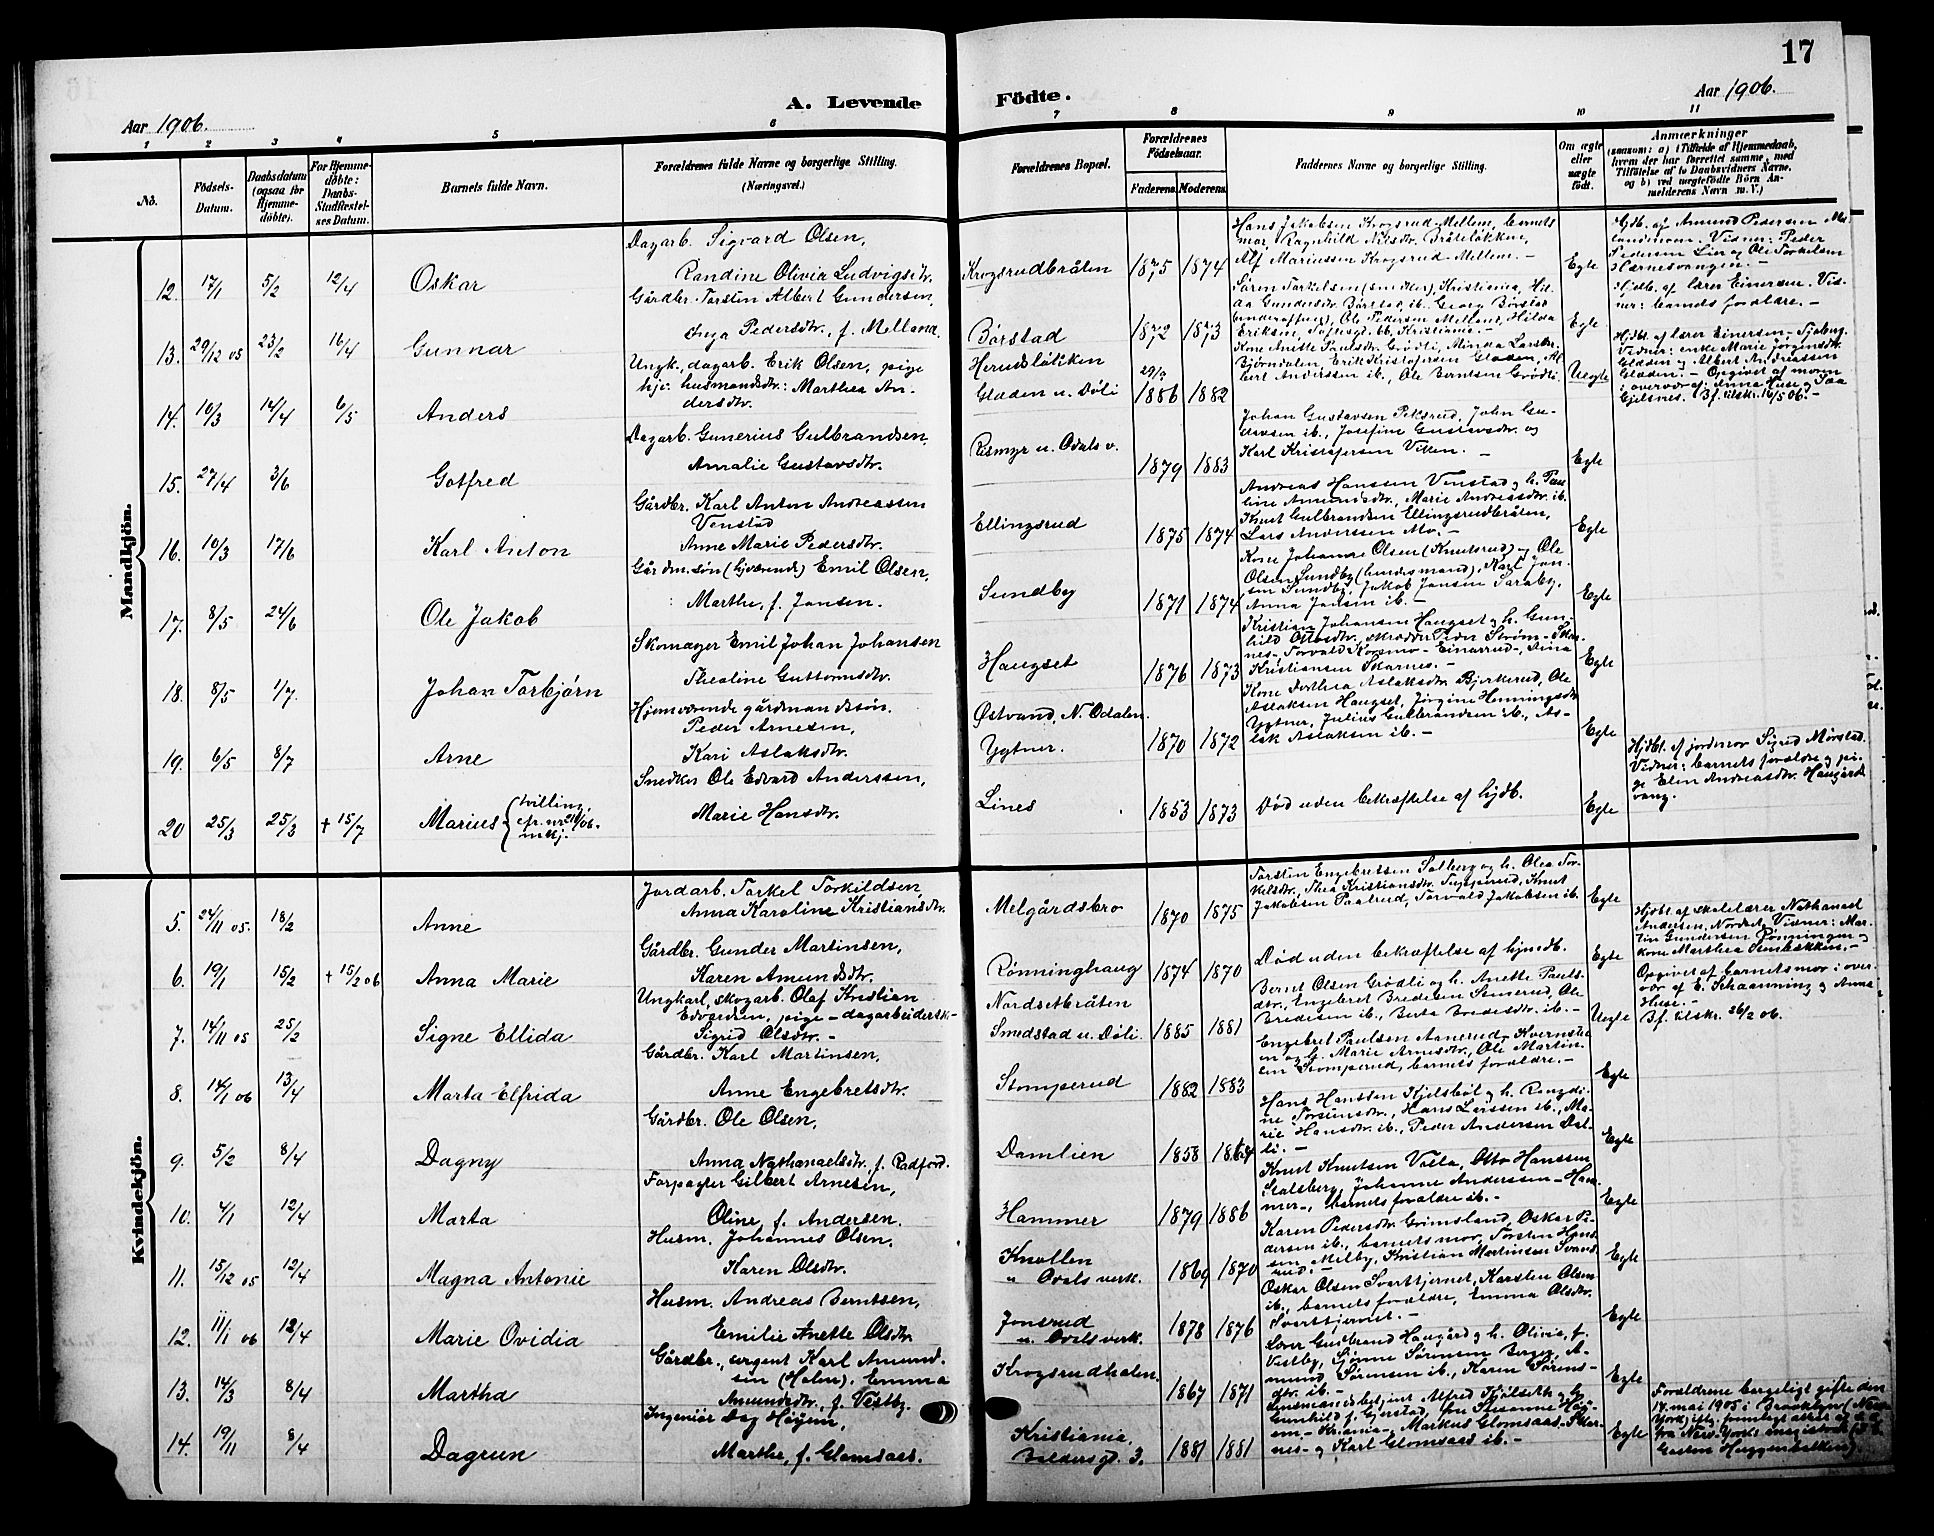 17
A. Levende Födte.
Aar 1906.
Aar 1906.
1 2 3 4 5 6 7 8 9 10 11
No.
Födsels-Datum.
Daabsdatum (ogsaa for Hjemmedöbte).
For Hjemmedöbte: Daabs-Stadfæstelses Datum.
Barnets fulde Navn.
Forældrenes fulde Navne og borgerlige Stilling. (Næringsvei.)
Forældrenes Bopæl.
Forældrenes Födselsaar.
Faderens. Moderens.
Faddernes Navne og borgerlige Stilling.
Om ægte eller uægte födt.
Anmærkninger
(saasom: a) i Tilfælde af Hjemmedaab, hvem der har forrettet samme, med Tilföielse af to Daabsvidners Navne, og b) ved uægtefödte Börn Anmelderens Navn m. V.)
Mandkjön.
12. 17/1 5/2 12/4 Oskar
Dagarb. Sigvard Olsen,
Randine Olivia Ludvigsdtr.
Krogsrudbråten 1875 1874
Hans Jakobsen Krogsrud-Mellem, barnets
mor, Ragnhild Nilsdtr. Bråteløkken,
Alf Mariussen Krogsrud-Mellem. -
Egte
Hjdb. af Amund Pedersen
Vidner: Peder
Pedersen Lier og Ole Torkelsen
13. 29/12 05 23/2 16/4 Gunnar
Gårdbr. Torsten Albert Gundersen,
Inga Pedersdtr., f. Melland.
Børstad 1872 1873
Søren Torkelsen (smedler), Kristiania,
Gundersdtr. Børstad ib. Georg Børstad
(underoffizer), Ole Pedersen Melland, Hilda
Eriksen, Kristiania. -
Egte
Hjdb. af lærer Einersen. Vidner: barnets forældre. -
14. 10/3 14/4 6/5 Anders
Ungk., dagarb. Erik Olsen, pige
hjv. husmandsdtr.: Marthea Andersdtr.
Herudsløkken
Gladen u. Döli 29/3 1886 1882
Kone Anette Paulsdtr. Grödli, Minda Larsdtr.
Bjørndalen, Erik Kristofersen Gladen, Albert Anderssen ib., Ole Berntsen Grödli.
Uegte
Hjdbt. af lærer Einersen-
Vidner: enke Marie Jørgensdtr.
Gladen og Albert Andreassen
Gladen. - Opgivet af moren
i overvær af: Anna Huse og
Gjelsnes. Bf. tilskr. 16/5 06. -
15. 27/4 3/6 Gotfred
Dagarb. Gunerius Gulbrandsen,
Amalie Gustavsdtr.
Rismyr u. Odals v. 1879 1883
Johan Gustavsen Peksrud, John Gustavsen ib., Josefine Gustavsdtr. og
Karl Kristofersen Viken. -
Egte
16. 10/3 17/6 Karl Anton
Gårdbr. Karl Anton Andreassen
Venstad
Anne Marie Pedersdtr.
Ellingsrud 1875 1874
Andreas Hanssen Venstad og h. Pauline Amundsdtr., Marie Andreasdtr. ib.
Knut Gulbrandsen Ellingsrudbråten,
Lars Anderssen Mo. -
Egte
17. 8/5 24/6 Ole Jakob
Gårdm.søn (hjværende) Emil Olsen,
Marthe, f. Jansen.
Sundby 1871 1874
Kone Johanne Olsen (Knutsrud) - Ole
Olsen Sundby (huusmand), Karl Jansen Sundby, Jakob Jansen Saraby,
Anna Jansen ib. -
Egte
18. 8/5 1/7. Johan Torbjørn
Skomager Emil Johan Johansen
Thealine Guttormsdtr.
Haugset 1876 1873
Kristian Johansen Haugset og h. Gunhild Ottosdtr., skrædder Peder Strøm-Skarnes-, Torvald Kosmo-Einarrud-,
Kristiansen Skarnes. -
Egte
19. 6/5 8/7 Arne
Hjemværende gårdmandssøn.
Peder Arnesen,
Kari Aslaksdtr.
Østvand, N. Odalen.
Ygtner. 1870 1872
Kone Dorthea Aslaksdtr. Bjerkerud, Ole
Aslaksen Haugset, Jørgine Henningsdtr.
Ygtner, Julius Gulbrandsen ib., Aslak Aslaksen ib. -
Egte
20 25/3 25/3 + 15/7 Marius { tvilling, cfr. nr. 21/06. mkj.
Snedker Ole Edvard Anderssen,
Marie Hansdtr.
Lines 1853 1873
Død uden bekræftelse af hjdb.
Egte
Hjdbt. af jordmor Sigrid Mørstad.
Vidner: barnets forældre og pige Elin Andreasdtr. Haugårdvang.
Kvindekjön.
5. 24/11 05. 18/2 Anne
Jordarb. Torkel Torkildsen
Anna Karoline Kristiansdtr.
Melgårdsbro 1870 1875
Torsten Engebretsen Solberg og h. Olea Torkelsdtr., Thea Kristiansdtr. Tupperud, Knut
Jakobsen Paalrud, Torvald Jakobsen ib.
Egte
6. 19/1 15/2 + 15/2 06 Anna Marie
Gårdbr. Gunder Martinsen,
Karen Amundsdtr.
Rønninghaug 1874 1870
Død uden bekræftelse af hjmdb.
Egte
Hjdbt. af skolelærer Nathanael
Andersen, Nordset. Vidner: Martin Gundersen Rønningen og
kone Marthea Sembakken. -
7. 14/11 05 25/2 Signe Ellida
Ungkarl, skogarb. Olaf Kristian
Edvardsen, pige - dagarbeiderske -
Sigrid Olsdtr. -
Nordsetbråten
Smedstad u. Döli. 1885 1881
Bernt Olsen Grödli og h. Anette Paulsdtr., Engebret Bredesen Simerud, Ole
Bredesen ib., Berta Bredesdtr. ib. -
Uegte
Opgivet af barnets mor i overvær af E. Schaanning og Anna
Huse. -
Bf. tilskr. 26/2 06.
8. 14/1 06 13/4 Marta Elfrida
Gårdbr. Karl Martinsen,
Anne Engebretsdtr.
Stomperud 1882 1883
Engebret Paulsen Aanerud-Kvernstuen og h. Marie Arnesdtr., Ole Martinsen Stomperud, barnets forældre. -
Egte
9. 5/2 8/4 Dagny
Gårdbr. Ole Olsen,
Anna Nathanaelsdtr. f. Radford.
Damlien 1858 1864
Hans Hansen Kjelsböl og h. Rangdine Torsensdtr., Hans Lerssen ib., Marie Hansdtr. ib., Peder Andersen Dalli. -
Egte
10. 4/1 12/4 Marta
Forpagter Gilbert Arnesen,
Oline, f. Andersen.
Hammer 1879 1886
Knut Knutsen Vasla, Otto Hanssen
Stalsberg, Johanne Anderssen-Hammer-, barnets forældre ib. -
Egte
11. 15/12 05 12/4 Magna Antonie
Husm. Johannes Olsen,
Karen Olsdtr.
Knollen
u Odals verk. 1869 1870
Karen Pedersdtr. Grimsland, Oskar Pedersen ib., barnets mor, Torsten Hanssen Milby, Kristian Martinsen Svansrud. -
Egte
12. 11/1 06 12/4 Marie Ovidia
Husm. Andreas Berntsen,
Emilie Anette Olsdtr.
Jonsrud
u. Odalsverk. 1878 1876
Oskar Olsen Svarttjernet, Karsten Olsen
ib., barnets forældre, Emma Olsdtr.
Svarttjernet. -
Egte
13. 14/3 8/4 Martha
Gårdbr., sergent Karl Amundsen (Holen), Emma
Amundsdtr., f. Vestby.
Krogsrudhalen. 1867 1871
Lærer Gudbrand Haugård og h. Olivia, f.
Vestby, Sjønne Sørensen Berger, Amund Sørensen ib., Karen Sørensdtr. ib. -
Egte
14. 19/11 8/4 Dagrun
Ingeniör Dag Höyem,
Marthe, f. Glomsaas.
Kristiania,
Baldersgd. 3. 1881 1881
Lensmandsbetjent Alfred Kjölseth og h.
Gunhild f. Gjerstad, fru Susanne Höyem-Krania-, Markus Glomsaas-Skarnes- og Karl Glomsaas ib. -
Egte
Forældrene borgeligt gifte den
17. mai 1905 i Brooklyn (New
York) iflg. fremlagt attest af
fra New-Yorks magistrat